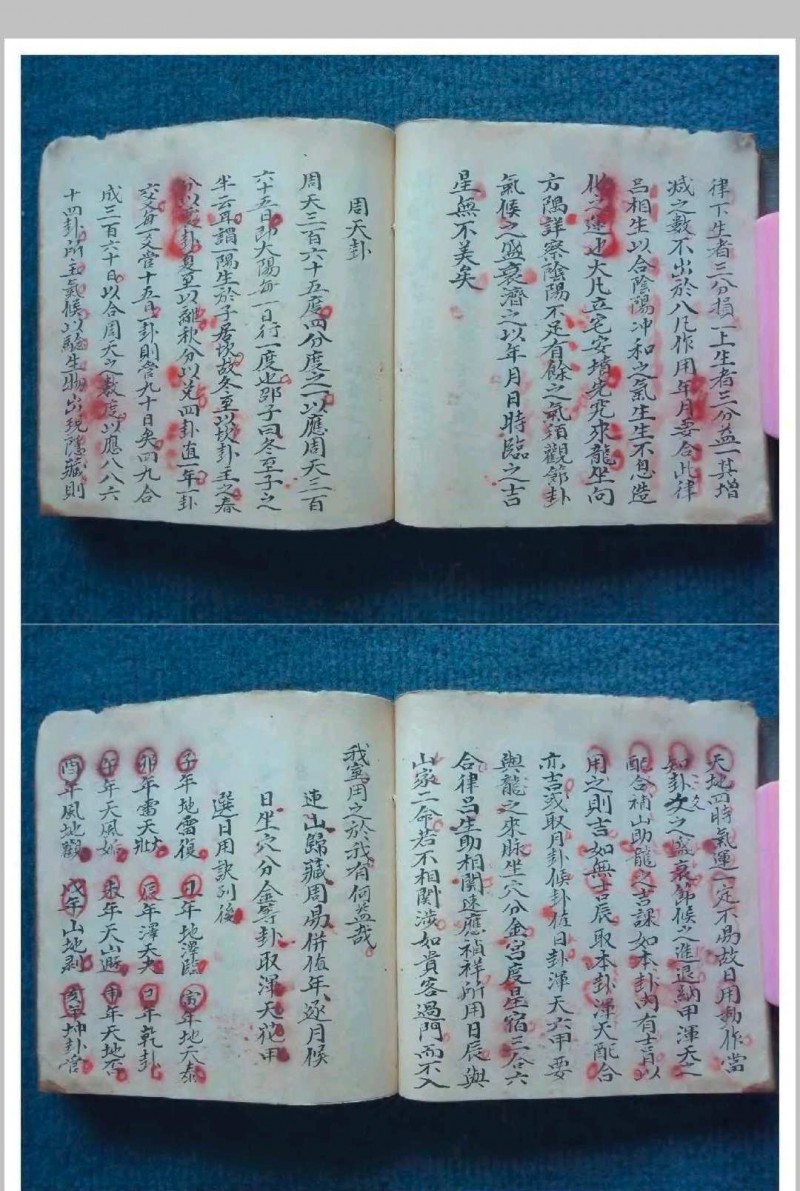 律下生者三分損一上生者三分益一其增
減之數不出於八凡作用年月要合此律
呂相生以合陰陽冲和之氣生生不息造
化之運也大凡立宅安墳先究來龍坐向
方隅詳察陰陽不足有餘之氣須觀節卦
氣候之盛衰濟之以年月日時臨之吉
星無不美矣
周天卦
周天三百六十五度四分度之一以應周天三百
六十五日即大陽每一日行一度也邵子曰冬至子之
半云耳謂一陽生於子居坎故冬至以坎卦主之春
分以震卦夏至以離秋分以兌四卦直一年一卦
六爻每一爻管十五日一卦則管九十日矣四九合
成三百六十日以合周天之数度以應八八六
十四卦所主氣候以驗生肖出現隱藏則
天地四時氣運一定不易故日用動作當
如卦爻之盛衰節候之進退納甲渾天之
配合補山助龍之吉課如本卦內有吉日以
用之則吉如無吉辰取本卦渾天配合
亦吉或取月卦候卦值日卦渾天六甲要
與龍之來脉生穴分金宮度星宿三合六
合律呂生助相關速應禎祥所用日辰與
山家一命若不相關涉如貴客過門而不入
我室用之於我有何益哉
連山歸藏周易併值年逐月候
日坐穴分金等卦取渾天花甲
選日用訣列後
子年地雷復 丑年地澤臨 寅年地天泰
卯年雷天大壯 辰年澤天夬 巳年乾卦
午年天風姤 未年天山遯 申年天地否
酉年風地觀 戌年山地剥 亥年坤卦管